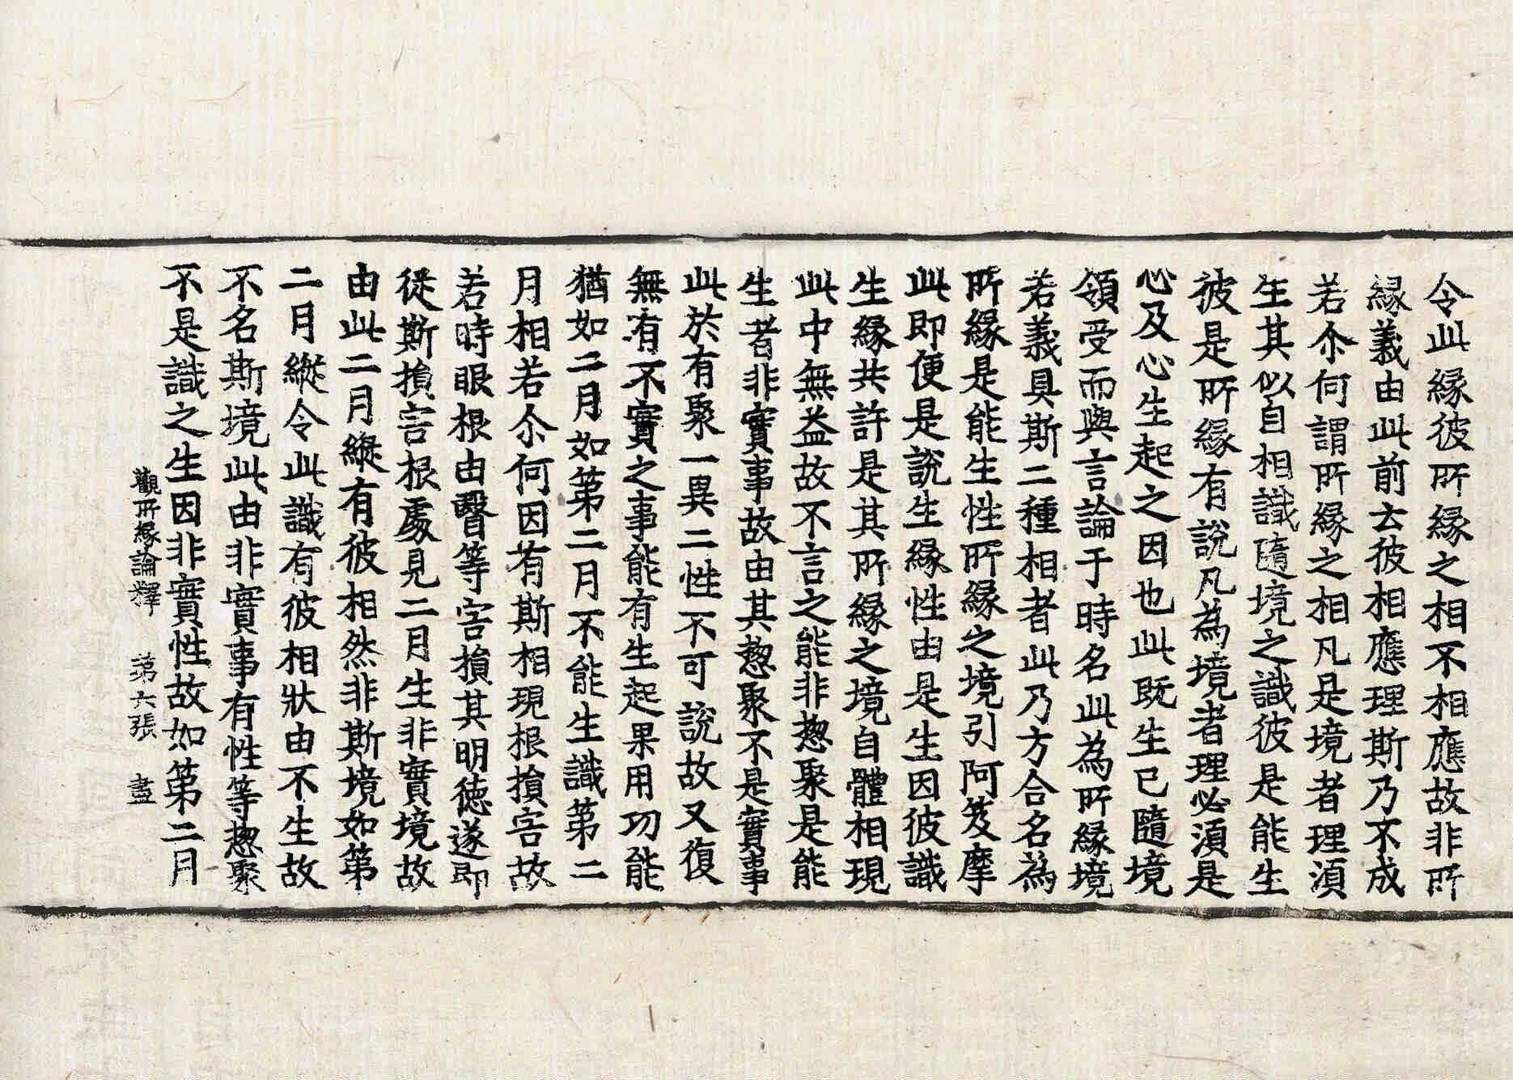 令此縁彼所縁之相不相應故非所
縁義由此前去彼相應理斯乃不成
若尒何謂所縁之相凡是境者理湏
生其似自相識隨境之識彼是能生
彼是所縁有說凡為境者理必湏是
心及心生起之因也此既生已隨境
領受而與言論于時名此為所縁境
若義具斯二種相者此乃方合名為
所縁是能生性所縁之境引阿笈摩
此即便是說生縁性由是生因彼識
生縁共許是其所縁之境自體相現
此中無益故不言之能非惣聚是能
生者非實事故由其惣聚不是實事
此於有聚一異二性不可說故又復
無有不實之事能有生起果用功能
猶如二月如第二月不能生識第二
月相若尒何因有斯相現根損害故
若時眼根由瞖等害損其明德遂即
從斯損害根處見二月生非實境故
由此二月縱有彼相然非斯境如第
二月縱令此識有彼相狀由不生故
不名斯境此由非實事有性等惣聚
不是識之生因非實性故如第二月
觀所縁論釋 第六張 盡